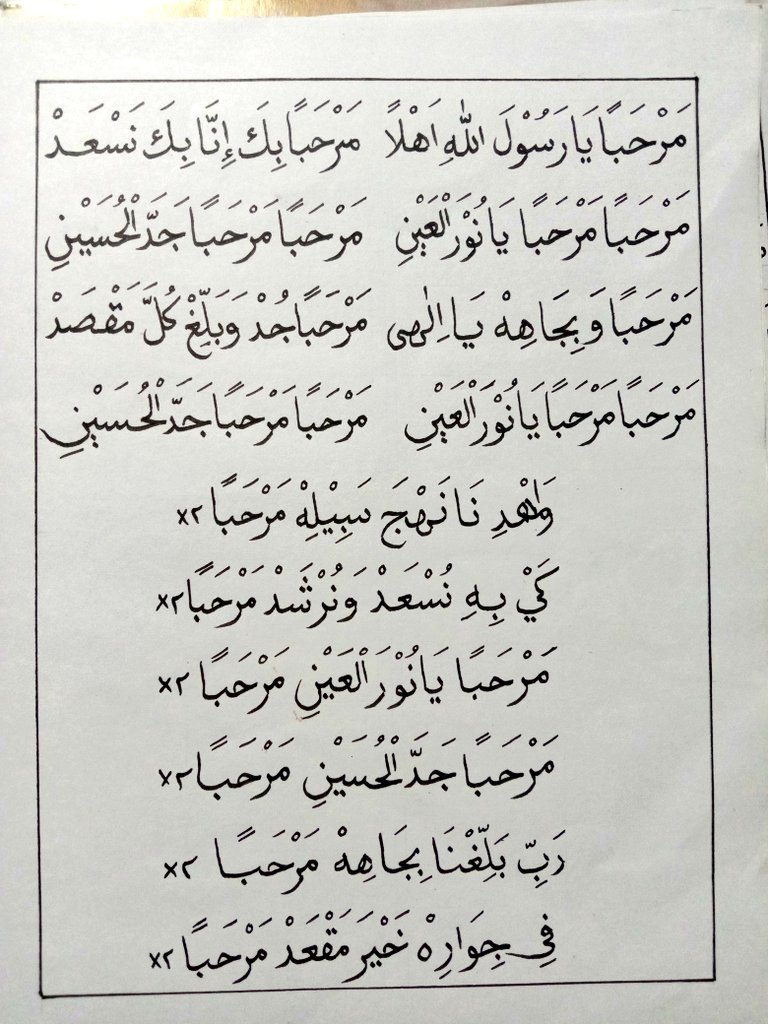 مَرْحَبًا يَا رَسُوْلَ اللّٰهِ اَهْلًا مَرْحَبًا بِكَ إِنَّا بِكَ نَسْعَدْ
مَرْحَبًا مَرْحَبًا يَا نُوْرَ الْعَيْنِ مَرْحَبًا مَرْحَبًا جَدَّ الْحُسَيْنِ
مَرْحَبًا وَبِجَاهِهْ يَا اِلٰهِى مَرْحَبًا جُدْ وَبَلِّغْ كُلَّ مَقْصَدْ
مَرْحَبًا مَرْحَبًا يَا نُوْرَ الْعَيْنِ مَرْحَبًا مَرْحَبًا جَدَّ الْحُسَيْنِ
وَاهْدِ نَا نَهْجَ سَبِيْلِهْ مَرْحَبًا ٢×
كَيْ بِهِ نُسْعَدْ وَنُرْشَدْ مَرْحَبًا ٢×
مَرْحَبًا يَا نُوْرَ الْعَيْنِ مَرْحَبًا ٢×
مَرْحَبًا جَدَّ الْحُسَيْنِ مَرْحَبًا ٢×
رَبِّ بَلِّغْنَا بِجَاهِهْ مَرْحَبًا ٢×
فِي جِوَارِهْ خَيْرَ مَقْعَدْ مَرْحَبًا ٢×